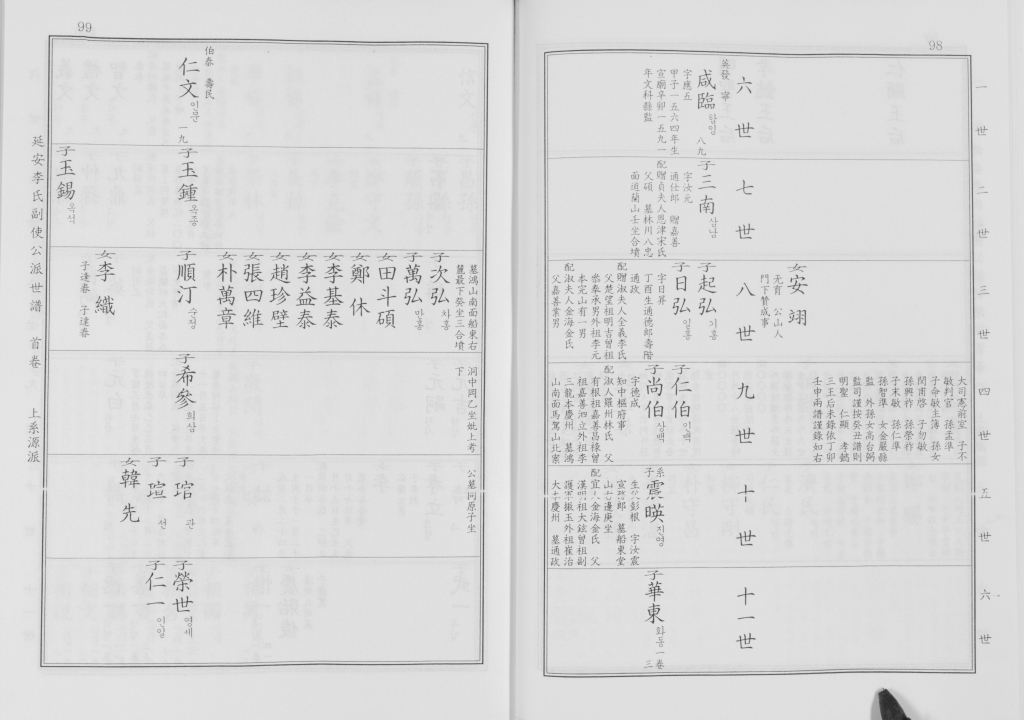 98
一世
二世
三世
四世
五世
六世
六世
英發 寧
咸臨 함임 八九
字應五
甲子一五六四年生
宣廟辛卯一五九一
年文科縣監
七世
子三南 삼남
字汝元
通仕郎 贈嘉善
配贈貞夫人恩津宋氏
父碩 墓林川八忠
面道蘭山壬坐合墳
八世
女安翊
无育 公山人
門下贊成事
子起弘 기홍
子日弘 일홍
字日昇
丁酉生通德郎壽階
通政
配贈淑夫人全義李氏
父楚望祖明吉曾祖
恭奉承男外祖李元
本完山有一男
配淑夫人金海金氏
父嘉善業男
九世
大司憲前室 子不
敏判官 孫孟準
子命敏主簿 孫女
閔甫啓 子勿敏
孫興祚 孫榮祚
子末敏 孫仁準
孫智準 女金嚴縣
監 外孫女高台弼
監司謹按癸丑譜則
明聖 仁顯 孝懿
三王后未錄依丁卯
壬申兩譜謹錄如右
子仁伯 인백
子尚伯 상백
字德成
知中樞府事
配淑人羅州林氏 父
有根祖嘉善昌祿曾
祖嘉善泗立外祖李
三龍本慶州 墓鴻
山南面馬駕山北索
十世
系子震暎 진영
生父彭根 字汝震
宣務郎 墓船東堂
山右邊庚坐
配宜人金海金氏 父
漢明祖大鉉曾祖副
護軍振玉外祖崔治
大本慶州 墓通政
十一世
子華東 화동 一卷 三
99
墓鴻山南面船東右
麓最下癸坐三合墳
洞中岡乙坐妣上考
下
公墓同原子坐
伯泰 壽民
仁文 인문 一九
子玉鍾 옥종
子玉錫 옥석
子次弘 차홍
子萬弘 만홍
女田斗碩
女鄭休
女李基泰
女李益泰
女趙珍壁
女張四維
女朴萬章
子順汀 수정
女李織
子逢春 子逮春
子希參 희삼
子琯 관
子瑄 선
女韓先
子榮世 영세
子仁一 인일
延安李氏副使公派世譜 首卷 上系源派